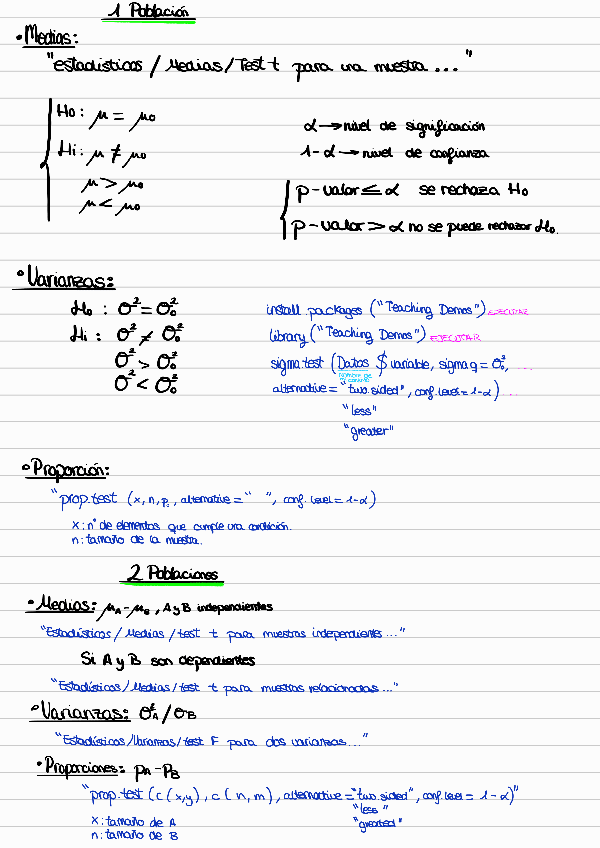 1 Población
• Medias:
"estadísticos / Medias / Test t para una muestra ..."
Ho: μ = μo
Hi: μ ≠ μo
μ > μo
μ < μo
α → nivel de significación
1-α → nivel de confianza
p-valor ≤ α se rechaza Ho
p-valor > α no se puede rechazar Ho.
• Varianzas:
Ho: σ² = σo²
Hi: σ² ≠ σo²
σ² > σo²
σ² < σo²
install packages ("Teaching Demos") EJECUTAR
library ("Teaching Demos") EJECUTAR
sigma.test (Datos $ variable, sigma q = σo², ....
Nombre de
alternative = "two.sided", conf.level = 1-α) ...
"less"
"greater"
• Proporción:
"prop.test (x, n, p, alternative = " ", conf. level = 1-α)
x: nº de elementos que cumple una condición.
n: tamaño de la muestra.
2 Poblaciones
• Medias: μA - μB, A y B independientes
"Estadísticos / Medias / test t para muestras independientes ..."
Si A y B son dependientes
"Estadísticos / Medias / test t para muestras relacionadas ..."
• Varianzas: σ²A / σB
"Estadísticos / Varianzas / test F para dos varianzas ..."
• Proporciones: pA - pB
"prop.test (c (x,y), c (n, m), alternative = "two.sided", conf.level = 1-α)"
"less"
"greated"
x: tamaño de A
n: tamaño de B